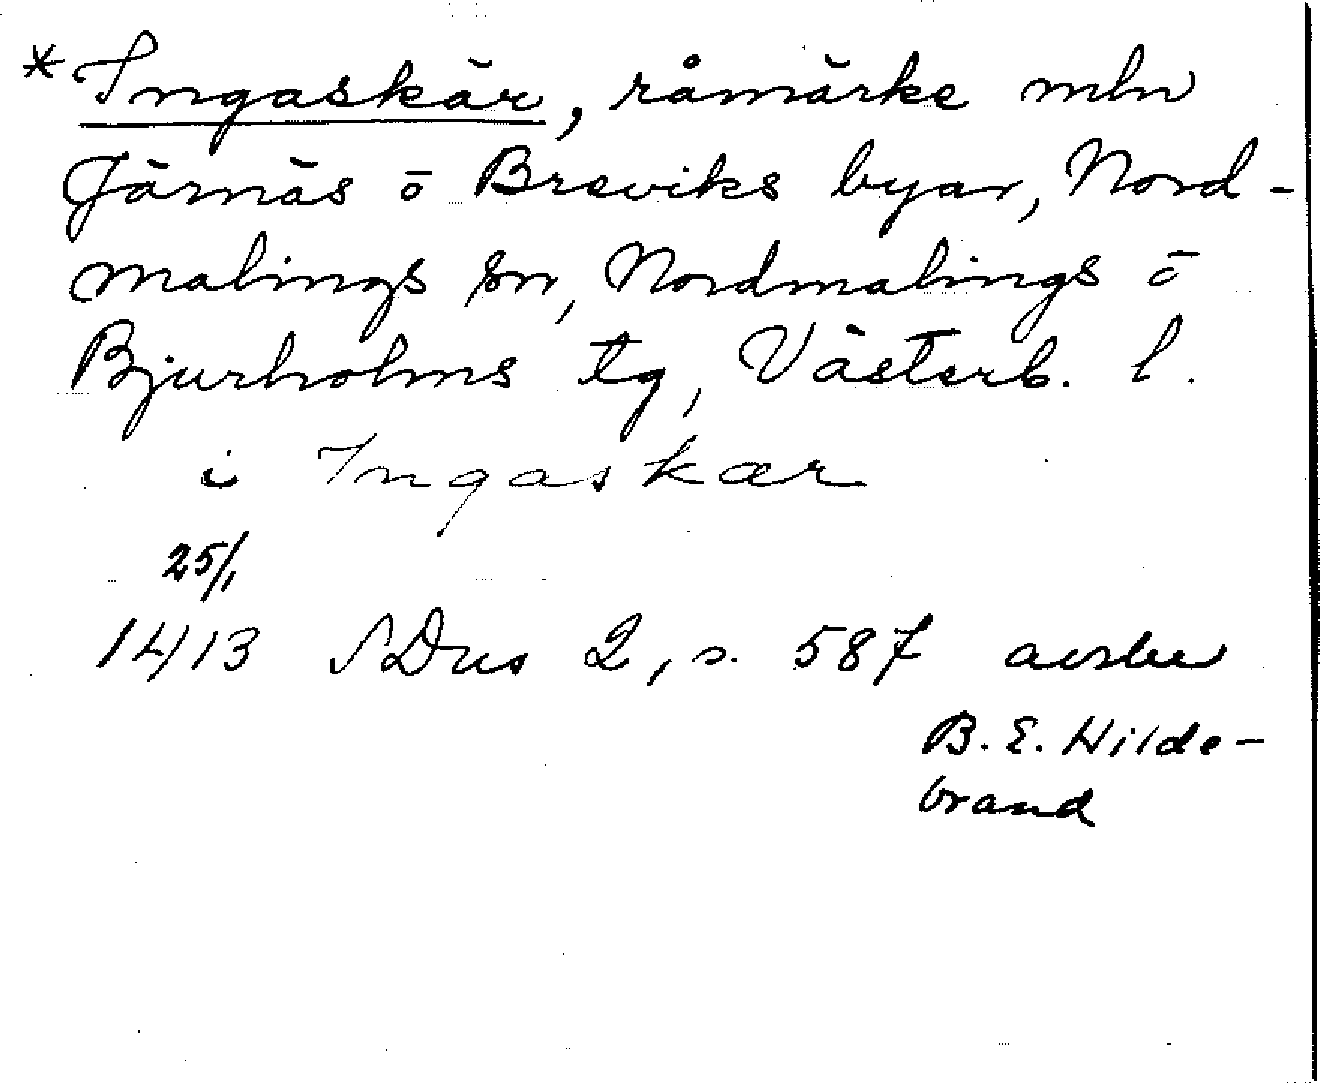 *Ingaskär, råmärke mln
Järnäs o Breviks byar, Nord-
malings sn, Nordmalings o
Bjurholms tg, Västerb. l.
i Ingaskær
25/1
1413 SDns 2, s. 587 avskr
B. E. Hilde-
brand